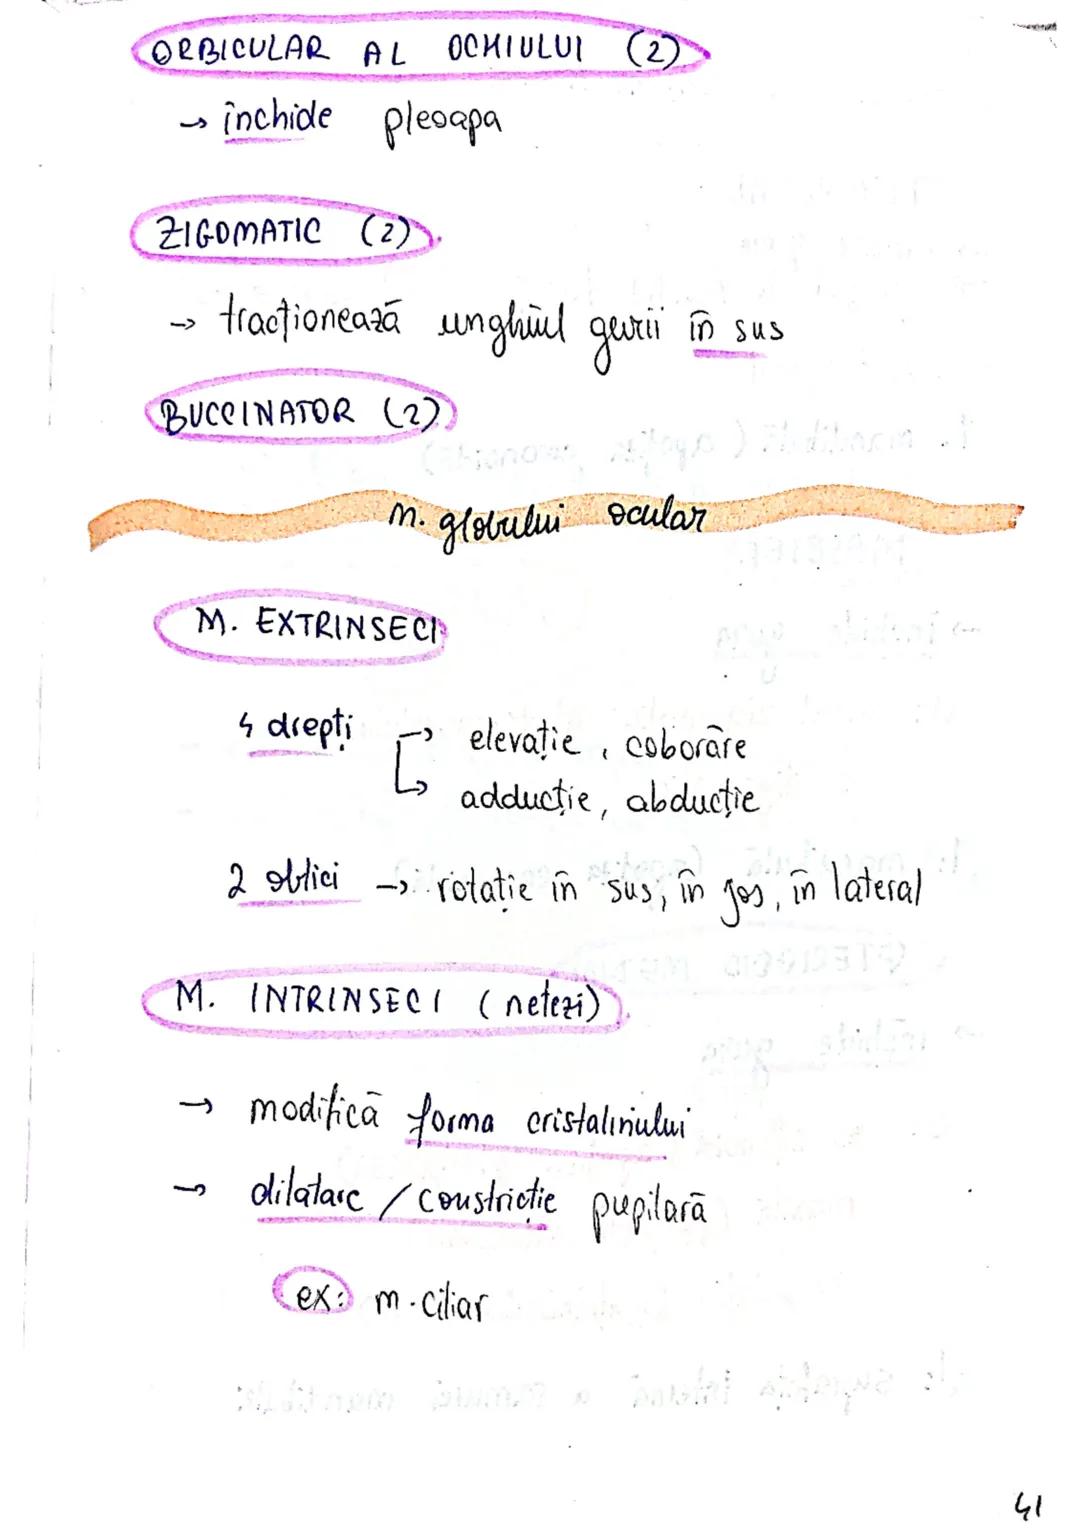 ORBICULAR AL OCHIULUI (2)
→ închide pleoapa
ZIGOMATIC (2)
→ tracționează unghiul gurii în sus
BUCCINATOR (2)
m. globului ocular
M. EXTRINSECI
4 drepți → elevație, coborâre
↳ adducție, abducție
2 oblici → rotație în sus, în jos, în lateral
M. INTRINSECI (netezi)
→ modifică forma cristalinului
→ dilatare / constricție pupilară
ex: m. ciliar
41